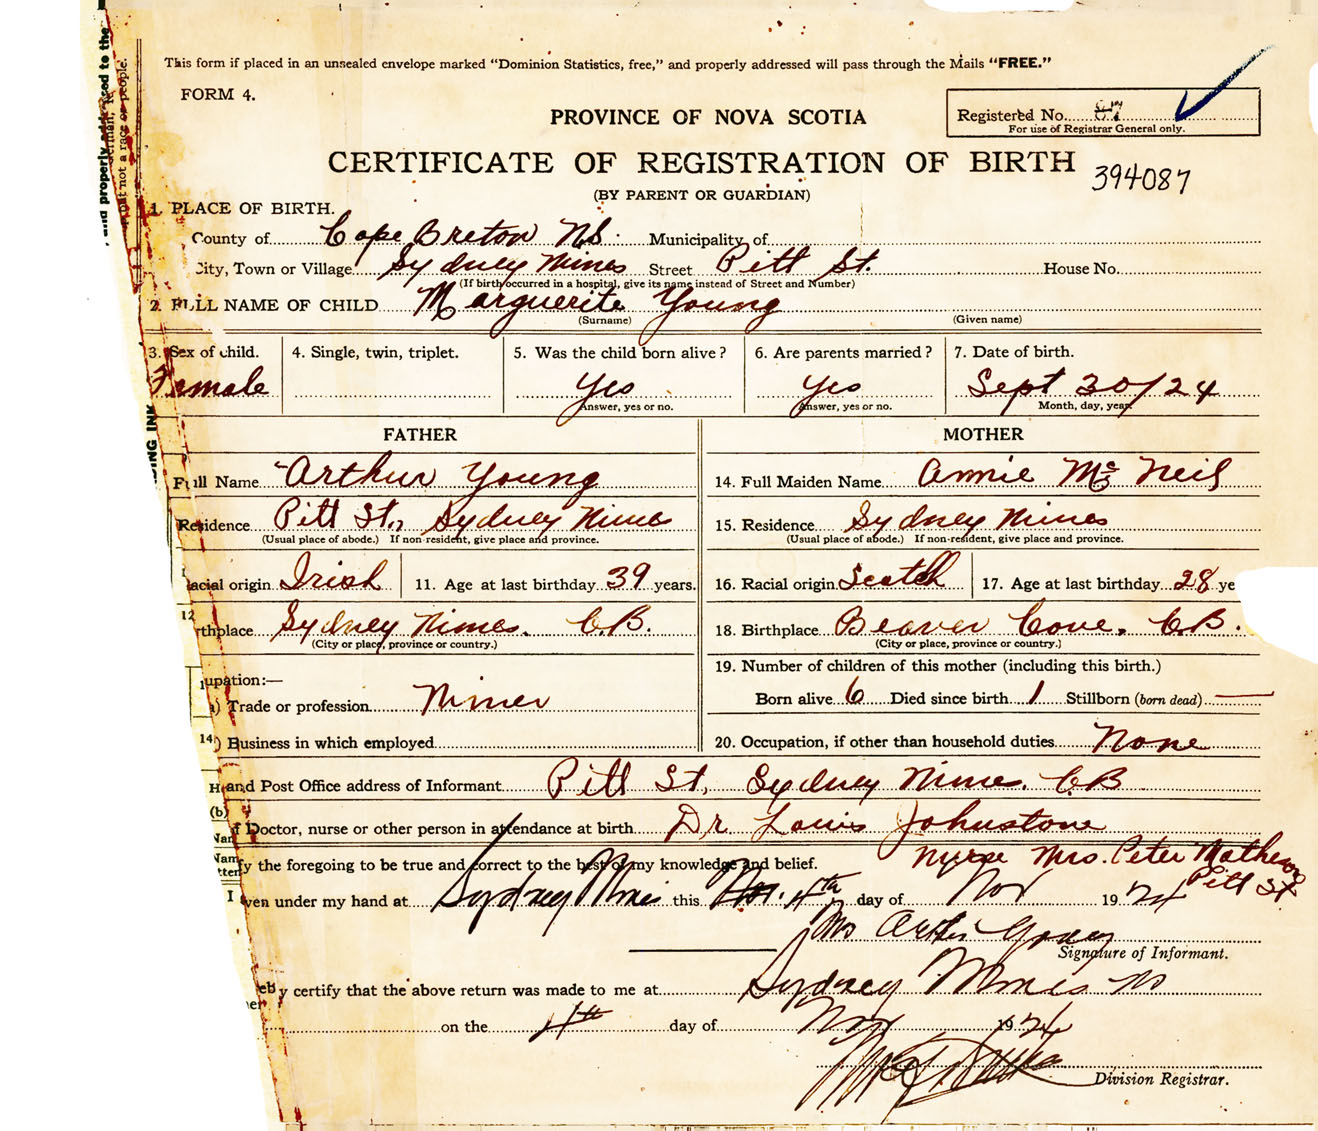 and properly addressed to the
but not a race or people.
This form if placed in an unsealed envelope marked "Dominion Statistics, free," and properly addressed will pass through the Mails "FREE."
FORM 4.
PROVINCE OF NOVA SCOTIA
Registered No.
For use of Registrar General only.
CERTIFICATE OF REGISTRATION OF BIRTH 394087
(BY PARENT OR GUARDIAN)
1. PLACE OF BIRTH.
County of Cape Breton NS. Municipality of
City, Town or Village Sydney Mines Street Pitt St. House No.
(If birth occurred in a hospital, give its name instead of Street and Number)
2. FULL NAME OF CHILD Marguerite Young
(Surname) (Given name)
3. Sex of child. 4. Single, twin, triplet. 5. Was the child born alive? 6. Are parents married? 7. Date of birth.
Female Yes Yes Sept 30/24
Answer, yes or no. Answer, yes or no. Month, day, year.
FATHER MOTHER
Full Name Arthur Young 14. Full Maiden Name Annie McNeil
Residence Pitt St., Sydney Mines 15. Residence Sydney Mines
(Usual place of abode.) If non-resident, give place and province. (Usual place of abode.) If non-resident, give place and province.
acial origin Irish 11. Age at last birthday 39 years. 16. Racial origin Scotch 17. Age at last birthday 28 ye
12
rthplace Sydney Mines. C.B. 18. Birthplace Beaver Cove. C.B.
(City or place, province or country.) (City or place, province or country.)
19. Number of children of this mother (including this birth.)
upation:—
Born alive 6 Died since birth 1 Stillborn (born dead) —
) Trade or profession Miner
14 ) Business in which employed 20. Occupation, if other than household duties None
and Post Office address of Informant Pitt St, Sydney Mines. CB
(b)
Nam
f Doctor, nurse or other person in attendance at birth Dr Louis Johnstone
Nurse Mrs. Peter Mathewson
Pitt St.
fy the foregoing to be true and correct to the best of my knowledge and belief.
I
ven under my hand at Sydney Mines this 4th day of Nov 1924
Mrs Arthur Young
Signature of Informant.
eby y certify that the above return was made to me at Sydney Mines
on the 4th day of Nov 1924
Division Registrar.